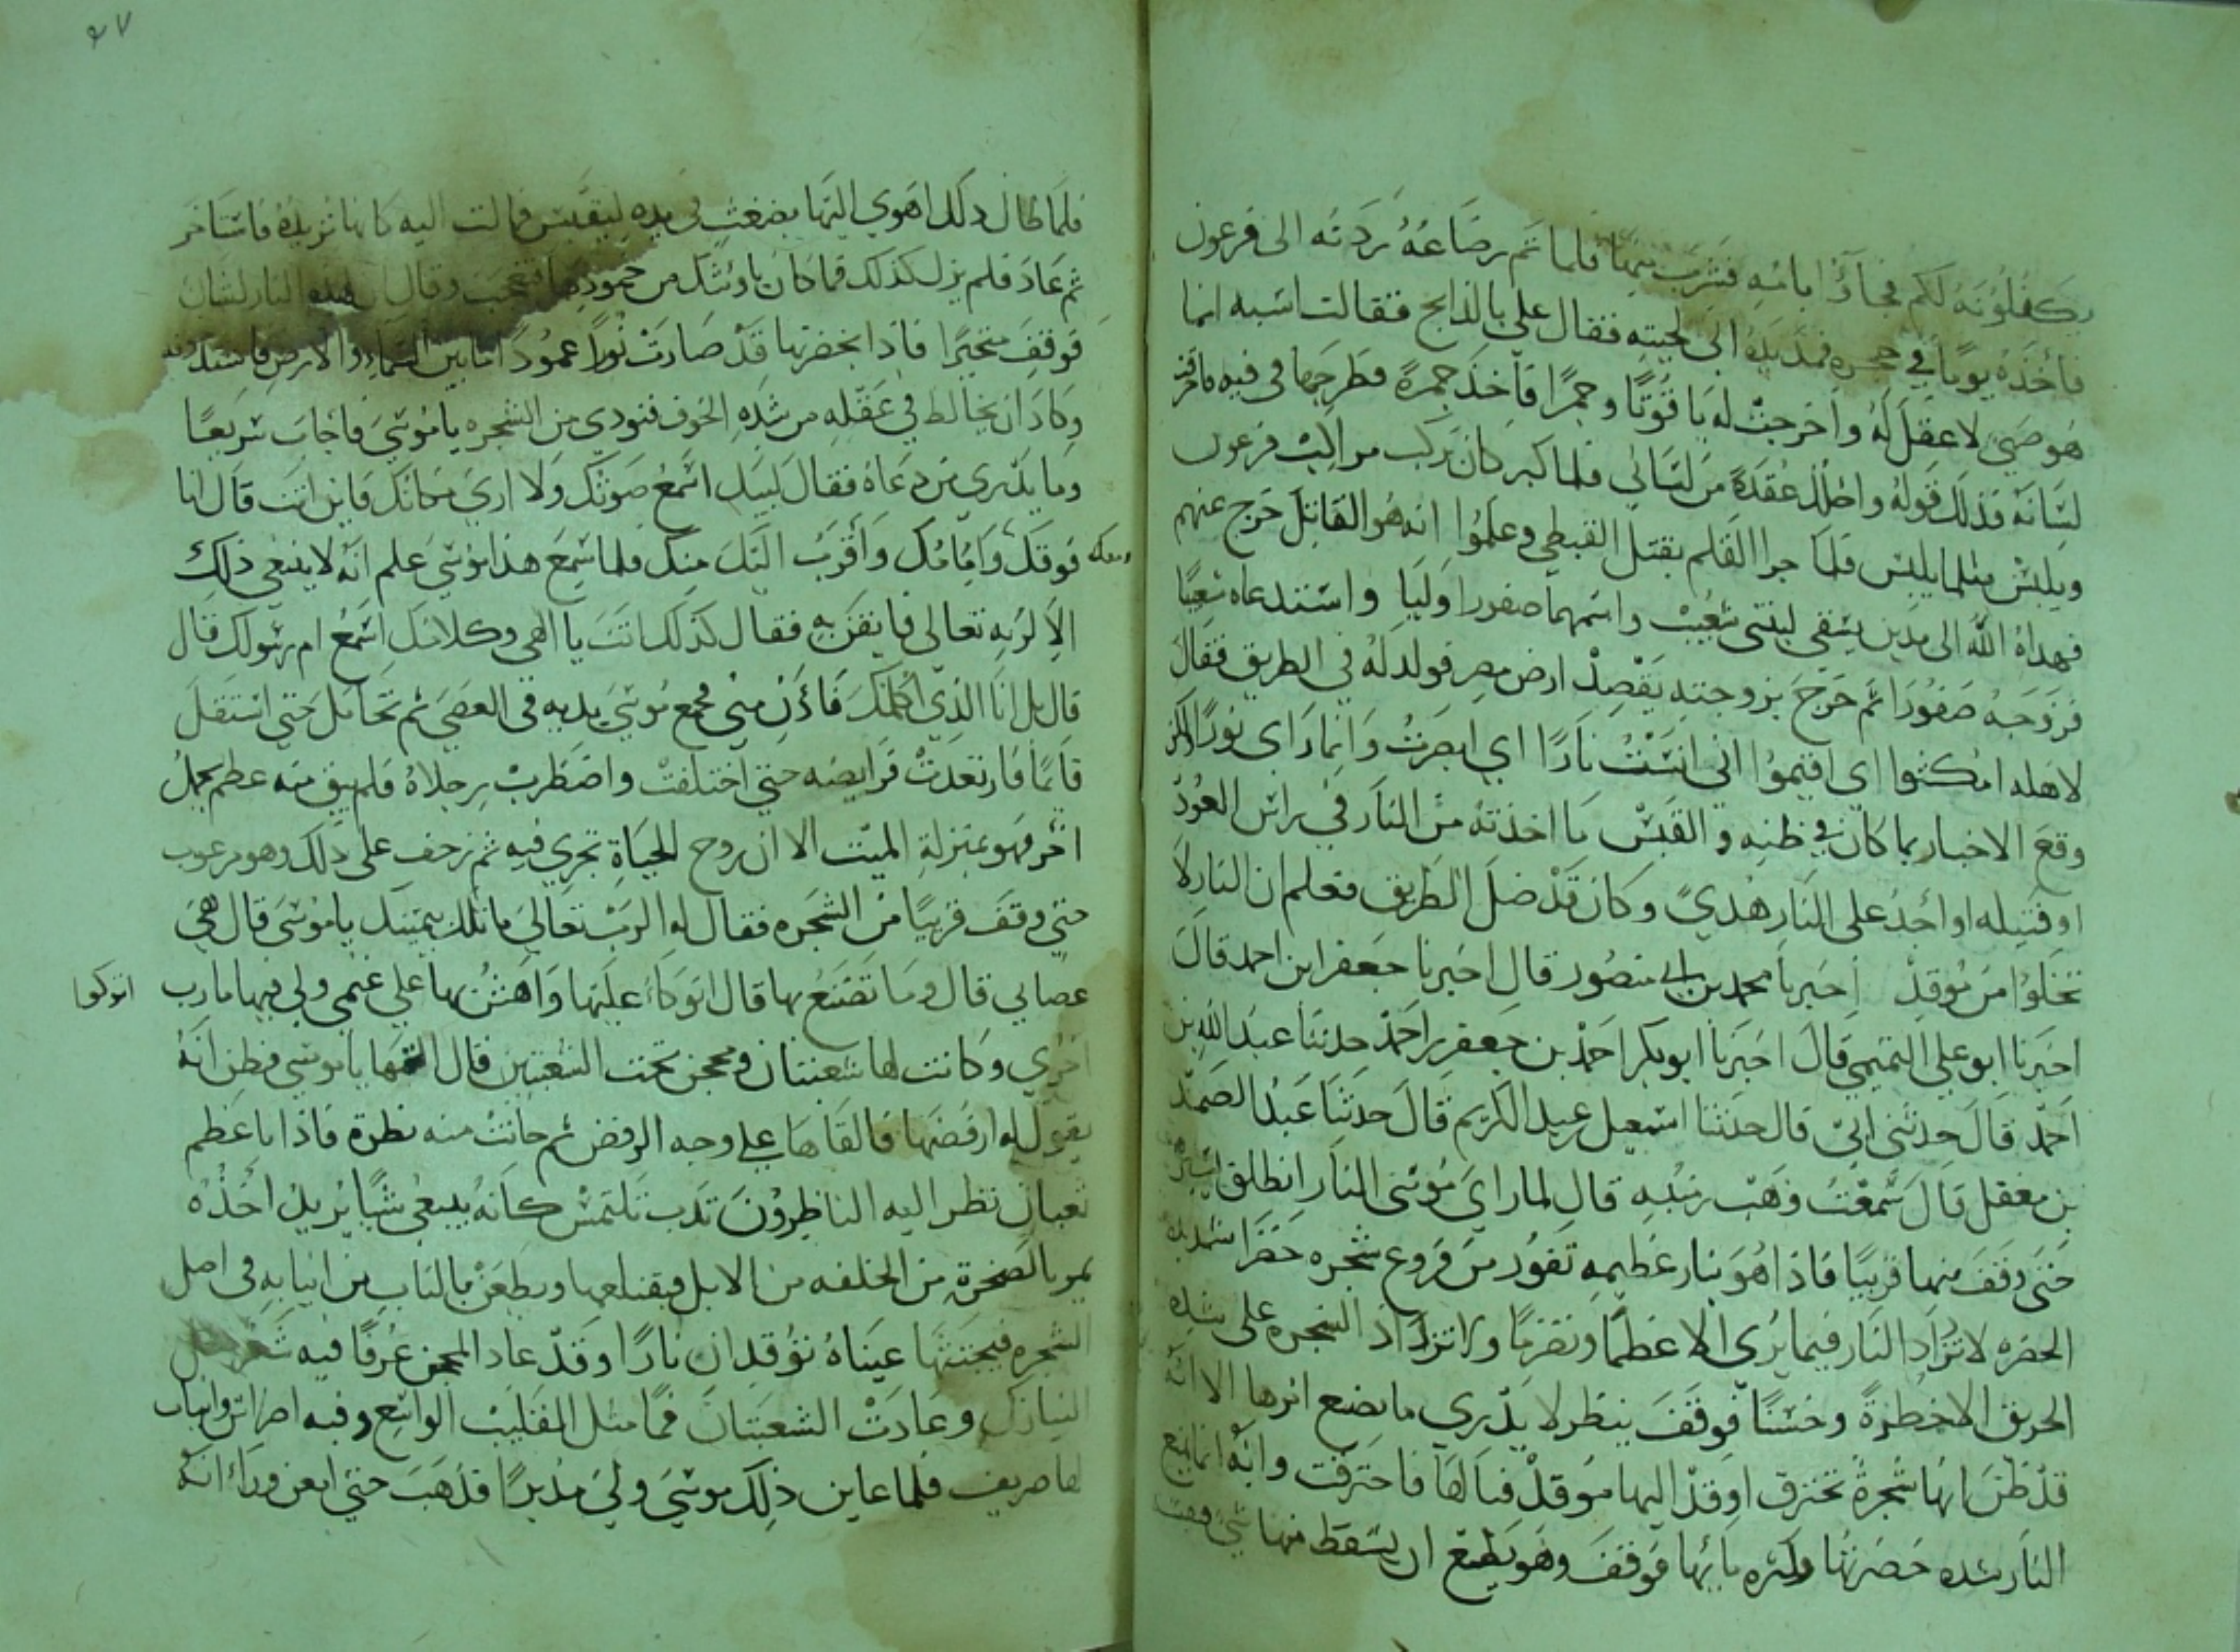 يكفلونه لكم فجاؤا بامه فشرب منها فلما تم رضاعه ردته الى فرعون
فأخذه يوما في حجره فمد يده الى لحيته فقال علي بالذابح فقالت اسيه انما
هو صبي لا عقل له واخرجت له ياقوتا وجمرا فأخذ جمرة فطرحها في فيه فاحرقت
لسانه فذلك قوله واحلل عقدة من لساني فلما كبر كان يركب مراكب فرعون
ويلبس مثلما يلبس فلما جرا القلم بقتل القبطي وعلموا انه هو القاتل خرج عنهم
فهداه الله الى مدين يسقي لبنتى شعيب واسمهما صفورا وليا واستدعاه شعيبا
فزوجه صفورا ثم خرج بزوجته يقصد ارض مصر فولد له في الطريق فقال
لاهله امكثوا اي اقيموا اني انست نارا اي ابصرت وانما راى نورا ولكن
وقع الاخبار بما كان في ظنه والقبس ما اخذته من النار في راس العود
او فتيله او أجد على النار هدى وكان قد ضل الطريق فعلم ان النار لا
تخلوا من موقد اخبرنا محمد بن ابي منصور قال اخبرنا جعفر ابن احمد قال
اخبرنا ابو علي التميمي قال اخبرنا ابو بكر احمد بن جعفر بن احمد حدثنا عبد الله بن
احمد قال حدثني ابي قال حدثنا اسمعيل بن عبد الكريم قال حدثنا عبد الصمد
بن معقل قال سمعت وهب بن منبه قال لما راي موسى النار انطلق يسير
حتى وقف منها قريبا فاذا هو بنار عظيمه تفور من فروع شجره خضرا شديده
الخضره لا تزداد النار فيما يرى الا عظما وتضرما ولا تزداد الشجره على شده
الحريق الا خضرة وحسنا فوقف ينظر لا يدري ما يصنع امرها الا انه
قد ظن انها شجرة تحترق اوقد اليها موقد فنالها فاحترقت وانه انما يمنع
النار شده خضرتها وكثره مائها فوقف وهو يطمع ان يسقط منها شي فيقتبسه
فلما طال ذلك اهوي اليها بضغث في يده ليقتبس فمالت اليه كانها تريده فاستاخر
ثم عاد فلم يزل كذلك فما كان باوشك من خمودها فتعجب وقال ان لهذه النار لشان
فوقف متحيرا فاذا بخضرتها قد صارت نورا عمودا ما بين السماء والارض فاشتد خوفه
وكاد ان يخالط في عقله من شده الخوف فنودي من الشجره يا موسى فأجاب سريعا
وما يدري من دعاه فقال لبيك اسمع صوتك ولا ارى مكانك فاين انت قال انا
فوقك ومعك وامامك واقرب اليك منك فلما سمع هذا موسى علم انه لا ينبغي ذلك
الا لربه تعالى فايقن به فقال كذلك انت يا الهي وكلامك اسمع ام رسولك قال
قال بل انا الذي اكلمك فأدن مني فجمع موسى يديه في العصي ثم تحامل حتى استقل
قائما فارتعدت فرايصه حتى اختلفت واضطربت رجلاه فلم يبق منه عظم يحمل
اخر فهو بمنزلة الميت الا ان روح الحياة تجري فيه ثم زحف على ذلك وهو مرعوب
حتى وقف قريبا من الشجره فقال له الرب تعالى ما تلك بيمينك يا موسى قال هي
عصاي قال وما تصنع بها قال اتوكاء عليها واهش بها علي غنمي ولي فيها مارب
اتوكوا
اخري وكانت لها شعبتان ومحجن تحت الشعبتين قال القها يا موسى فظن انه
يقول له ارفضها فالقاها على وجه الرفض ثم حانت منه نظرة فاذا باعظم
ثعبان نظر اليه الناظرون تدب تلتمس كانه يبتغي شيا يريد اخذه
يمر بالصخرة من الخلفه من الابل فيقتلعها ويطعن بالناب من انيابه في اصل
الشجره فيجتثها عيناه توقدان نارا وقد عاد المحجن عرفا فيه شعر مثل
النيازك وعادت الشعبتان فما مثل القليب الواسع وفيه اضراس وانياب
لها صريف فلما عاين ذلك موسى ولي مدبرا فذهب حتى امعن وراء انه